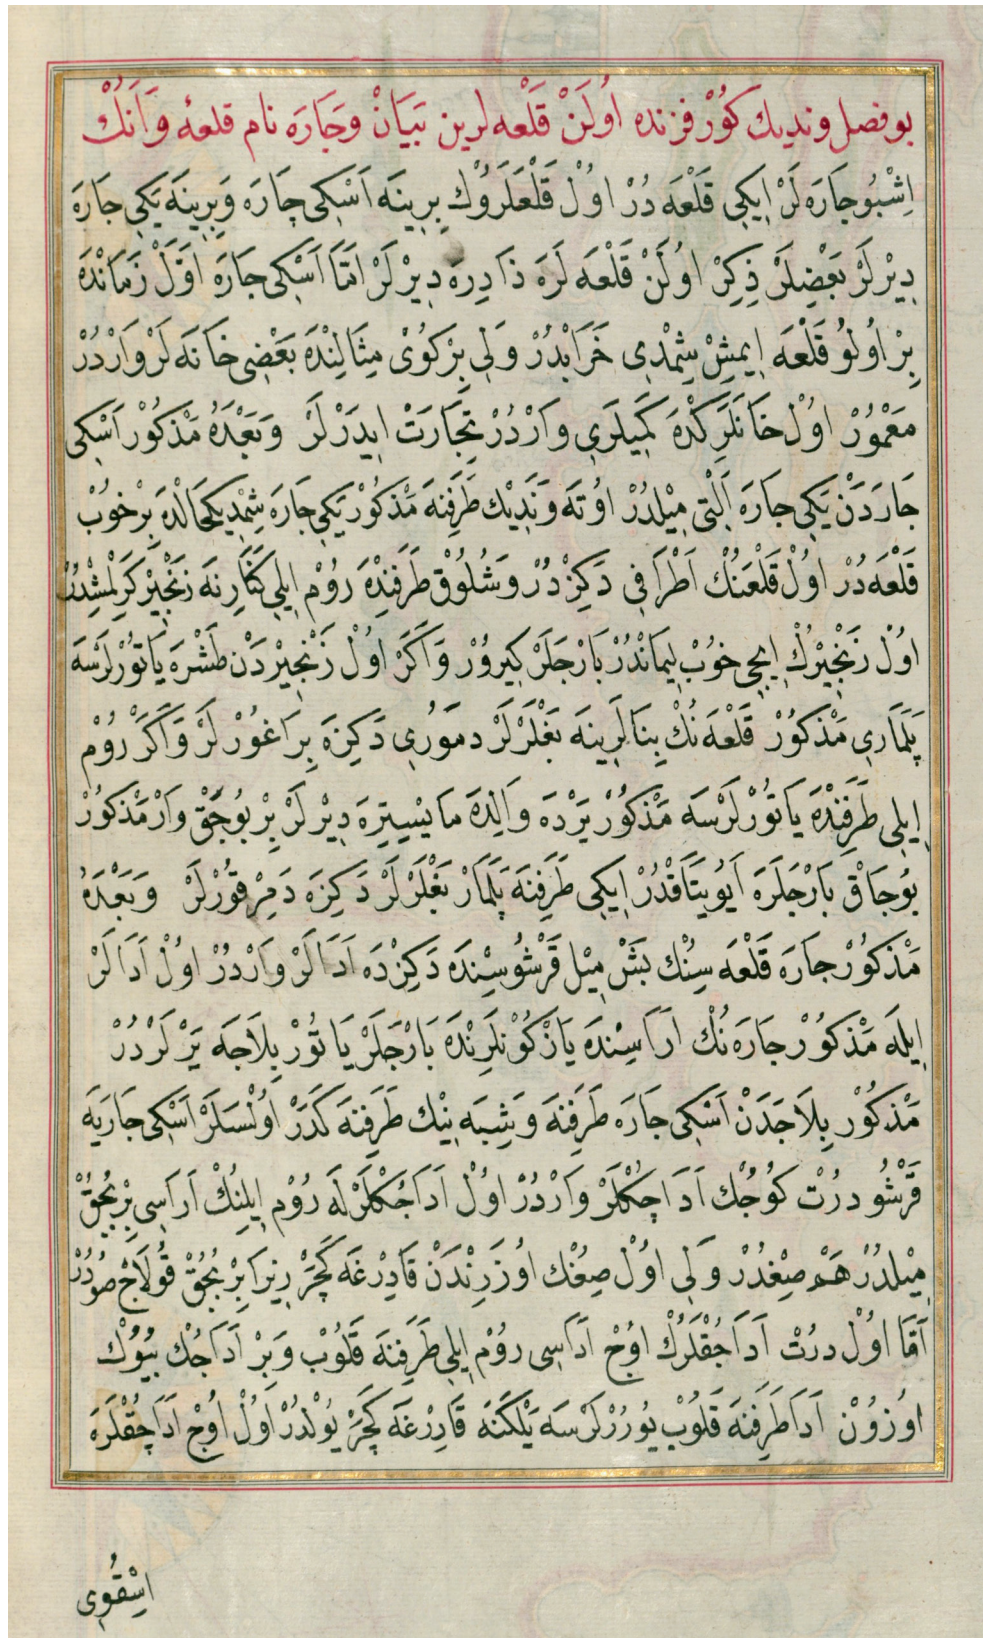 بو فصل وندیك كُورْفزنده اُولَنْ قَلْعَه لرین بَیَانْ وَجَارَه نام قلعهٔ وَاَنكُ
اِشْبُو جَارَه لَرْ اِیكِی قَلْعَه دُرْ اوُلْ قَلْعَلَرُوكْ بِرِینَه اَسْكِی جَارَه وَبِرِینَه یَكِی جَارَه
دِیْرلَرْ بَعْضِیلَرْ ذِكِرْ اوُلَنْ قَلْعَه لَرَه ذَادِرَه دِیْرلَرْ اَمَّا اَسْكِی جَارَه اَوَّلْ زَمَانْدَه
بِرْ اوُلُو قَلْعَه اِیمِشْ شِمْدِی خَرَابْدُرْ وَلِی بِرْ كُوْی مِثَالِنْدَه بَعْضِی خَانَه لَرْ وَارْدُرْ
مَعْمُورْ اوُلْ خَانَلَرِكْدَه كَمِیلَرِی وَارْدُرْ تِجَارَتْ اِیدَرْلَرْ وَبَعْدَهُ مَذْكُورْ اَسْكِی
جَارَدَنْ یَكِی جَارَه اَلْتِی مِیْلدُرْ اوُتَه وَنَدِیْك طَرَفِنَه مَذْكُورْ یَكِی جَارَه شِمْدِیكِی حَالْدَه بِرْ خُوبْ
قَلْعَه دُرْ اوُلْ قَلْعَنُكْ اَطْرَافِی دَكِزْ دُرْ وَشُلُوقْ طَرَفِنْدَه رُومْ اِیلِی كَنَارِنَه زَنْجِیْرْ كَرِلْمِشْدُرْ
اوُلْ زَنْجِیْرُكْ اِیچِی خُوبْ لِیمَانْدُرْ بَارْجَلَرْ كِیرُورْ وَاَكَرْ اوُلْ زَنْجِیْردَنْ طَشْرَه یَاتُوْرلَرْسَه
پَلَمَارِی مَذْكُورْ قَلْعَه نُكْ بِنَالَرِینَه بَغْلَرْلَرْ دموُرِی دَكِزَه بِرَاغُوْرلَرْ وَاَكَرْ رُومْ
اِیلِی طَرَفِنْدَه یَاتُوْرلَرْسَه مَذْكُورْ یَرْدَه وَالِدَه مَایِسِتِرَه دِیْرلَرْ بِرْ بُوجَقْ وَارْ مَذْكُورْ
بُوجَاقْ بَارْجَلَرَه اَیُو یَتَاقْدُرْ اِیكِی طَرَفِنَه پَلَمَارْ بَغْلَرْلَرْ دَكِزَه دَمِرْ قُوْرلَرْ وَبَعْدَهُ
مَذْكُورْ جَارَه قَلْعَه سِنُكْ بَشْ مِیْل قَرْشُوسِنْدَه دَكِزْدَه اَدَالَرْ وَارْدُرْ اوُلْ اَدَالَرْ
اِیلَه مَذْكُورْ جَارَه نُكْ اَرَاسِنْدَه یَازْ كُونْلَرِنْدَه بَارْجَلَرْ یَاتُوْر بِلَاجَه یَرْلَرْدُرْ
مَذْكُورْ بِلَاجَدَنْ اَسْكِی جَارَه طَرَفِنَه وَشِبَه نِیْك طَرَفِنَه كَدَرْ اوُلْسَلَرْ اَسْكِی جَارَیَه
قَرْشُو دُرْتْ كُوجُكْ اَدَاجِكْلَرْ وَارْدُرْ اوُلْ اَدَاجُكْلَرْلَه رُومْ اِیلِنُكْ اَرَاسِی بِرْ بُجُقْ
مِیْلدُرْ هَمْ صِغْدُرْ وَلِی اوُلْ صِغْكْ اوُزَرِنْدَنْ قَادِرْغَه كَچَرْ زِیرَا بِرْ بُجُقْ قُولَاجْ صُودُرْ
اَمَّا اوُلْ دُرْتْ اَدَاجُقْلَرُكْ اوُجْ اَدَاسِی رُومْ اِیلِی طَرَفِنَه قَلُوبْ وَبِرْ اَدَاجُكْ بُیُوكْ
اوُزُونْ اَدَا طَرَفِنَه قَلُوبْ یُورُرْلَرْسَه یَلْكَنَه قَادِرْغَه كَچَرْ یُولْدُرْ اوُلْ اوُجْ اَدَاجُقْلَرَه
اسْقُوی